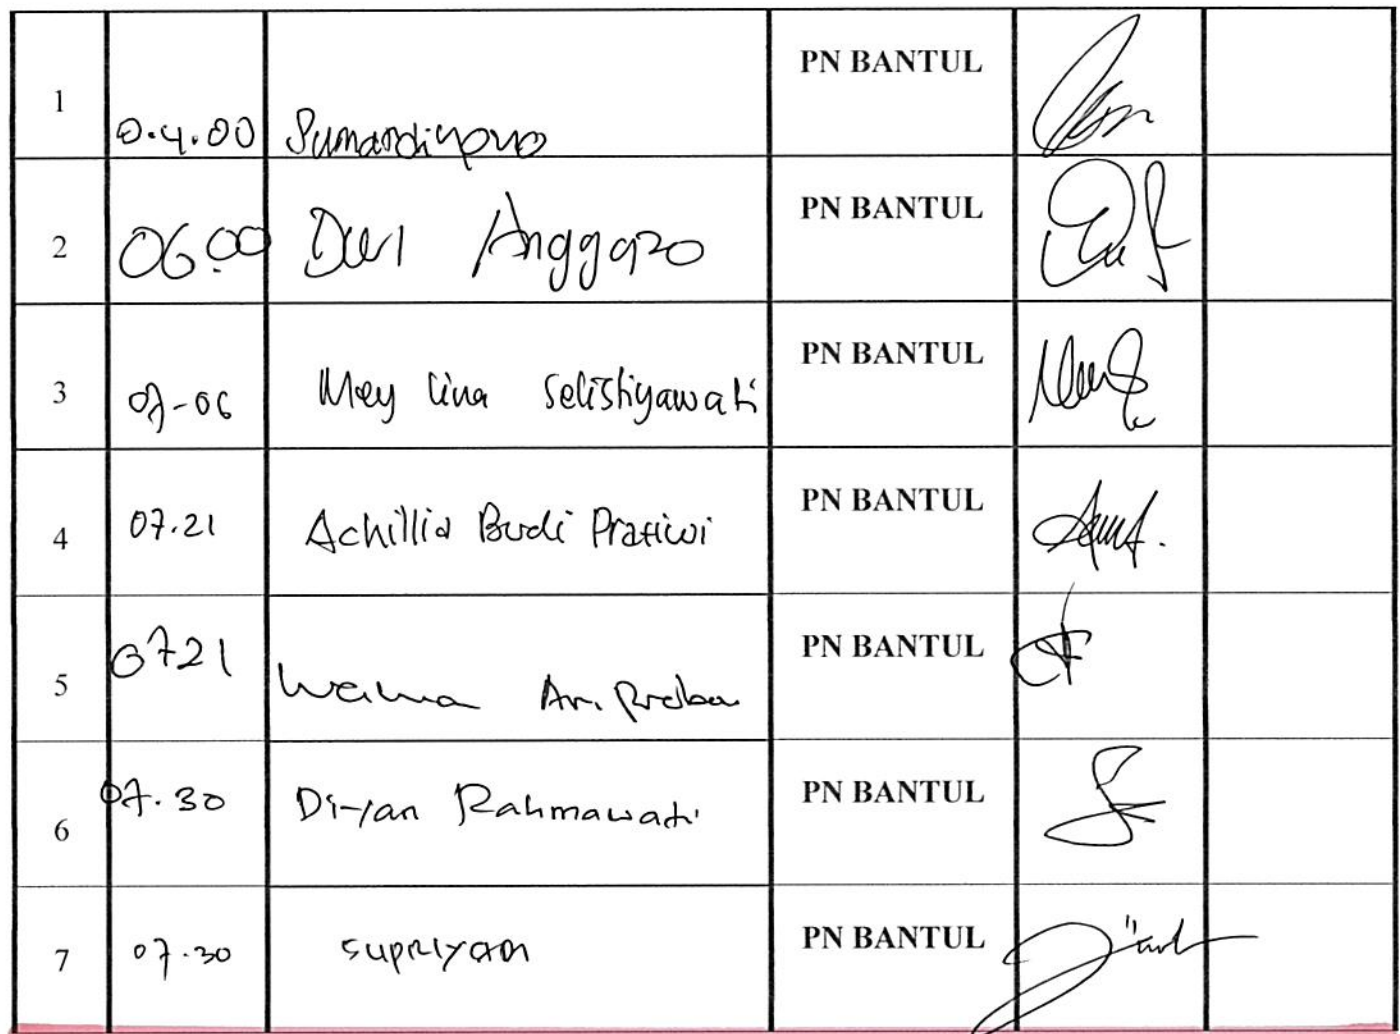 1 0.4.00 Sumardiyono PN BANTUL
2 06.00 Dwi Anggoro PN BANTUL
3 07-06 Mey Lina Selistiyawati PN BANTUL
4 07.21 Achillia Budi Pratiwi PN BANTUL
5 0721 PN BANTUL
6 07.30 Diyan Rahmawati PN BANTUL
7 07.30 Supriyan PN BANTUL